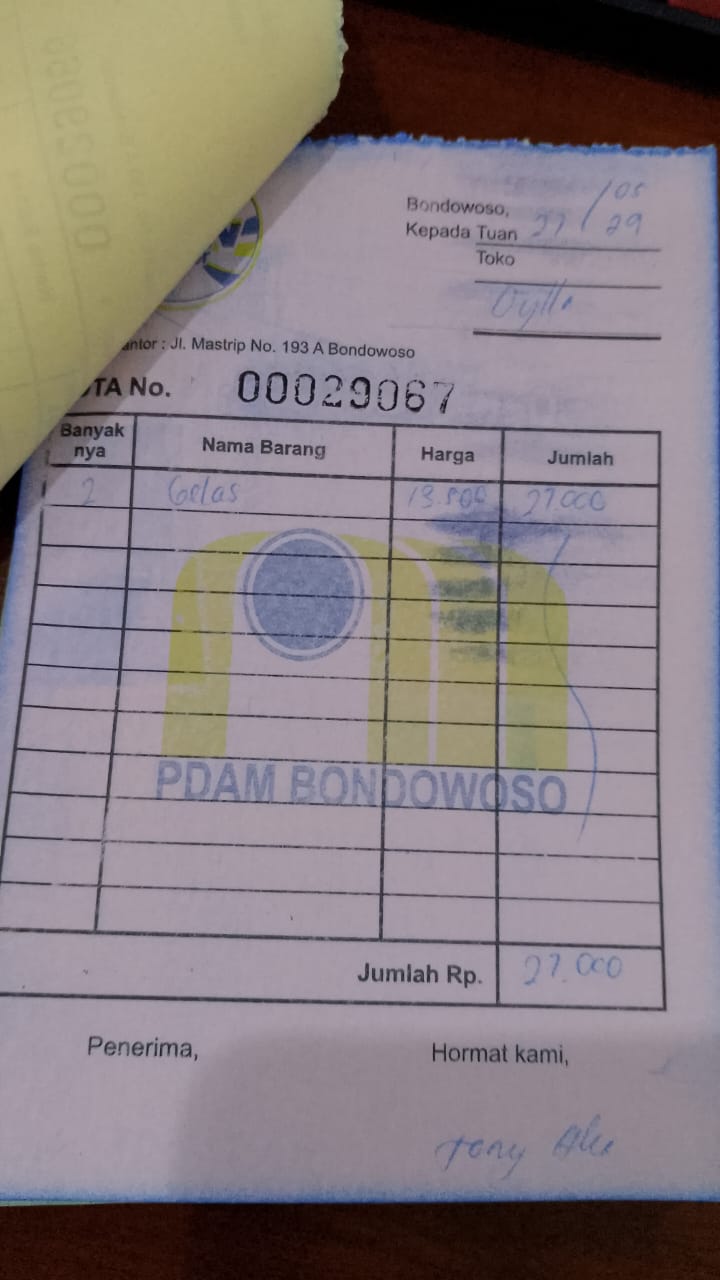 Bondowoso, 27/05
Kepada Tuan 29
Toko
Dylla
antor : Jl. Mastrip No. 193 A Bondowoso
TA No. 00029067
Banyak nya Nama Barang Harga Jumlah
2 Gelas 13.500 27.000
PDAM BONDOWOSO
Jumlah Rp. 27.000
Penerima, Hormat kami,
Tony